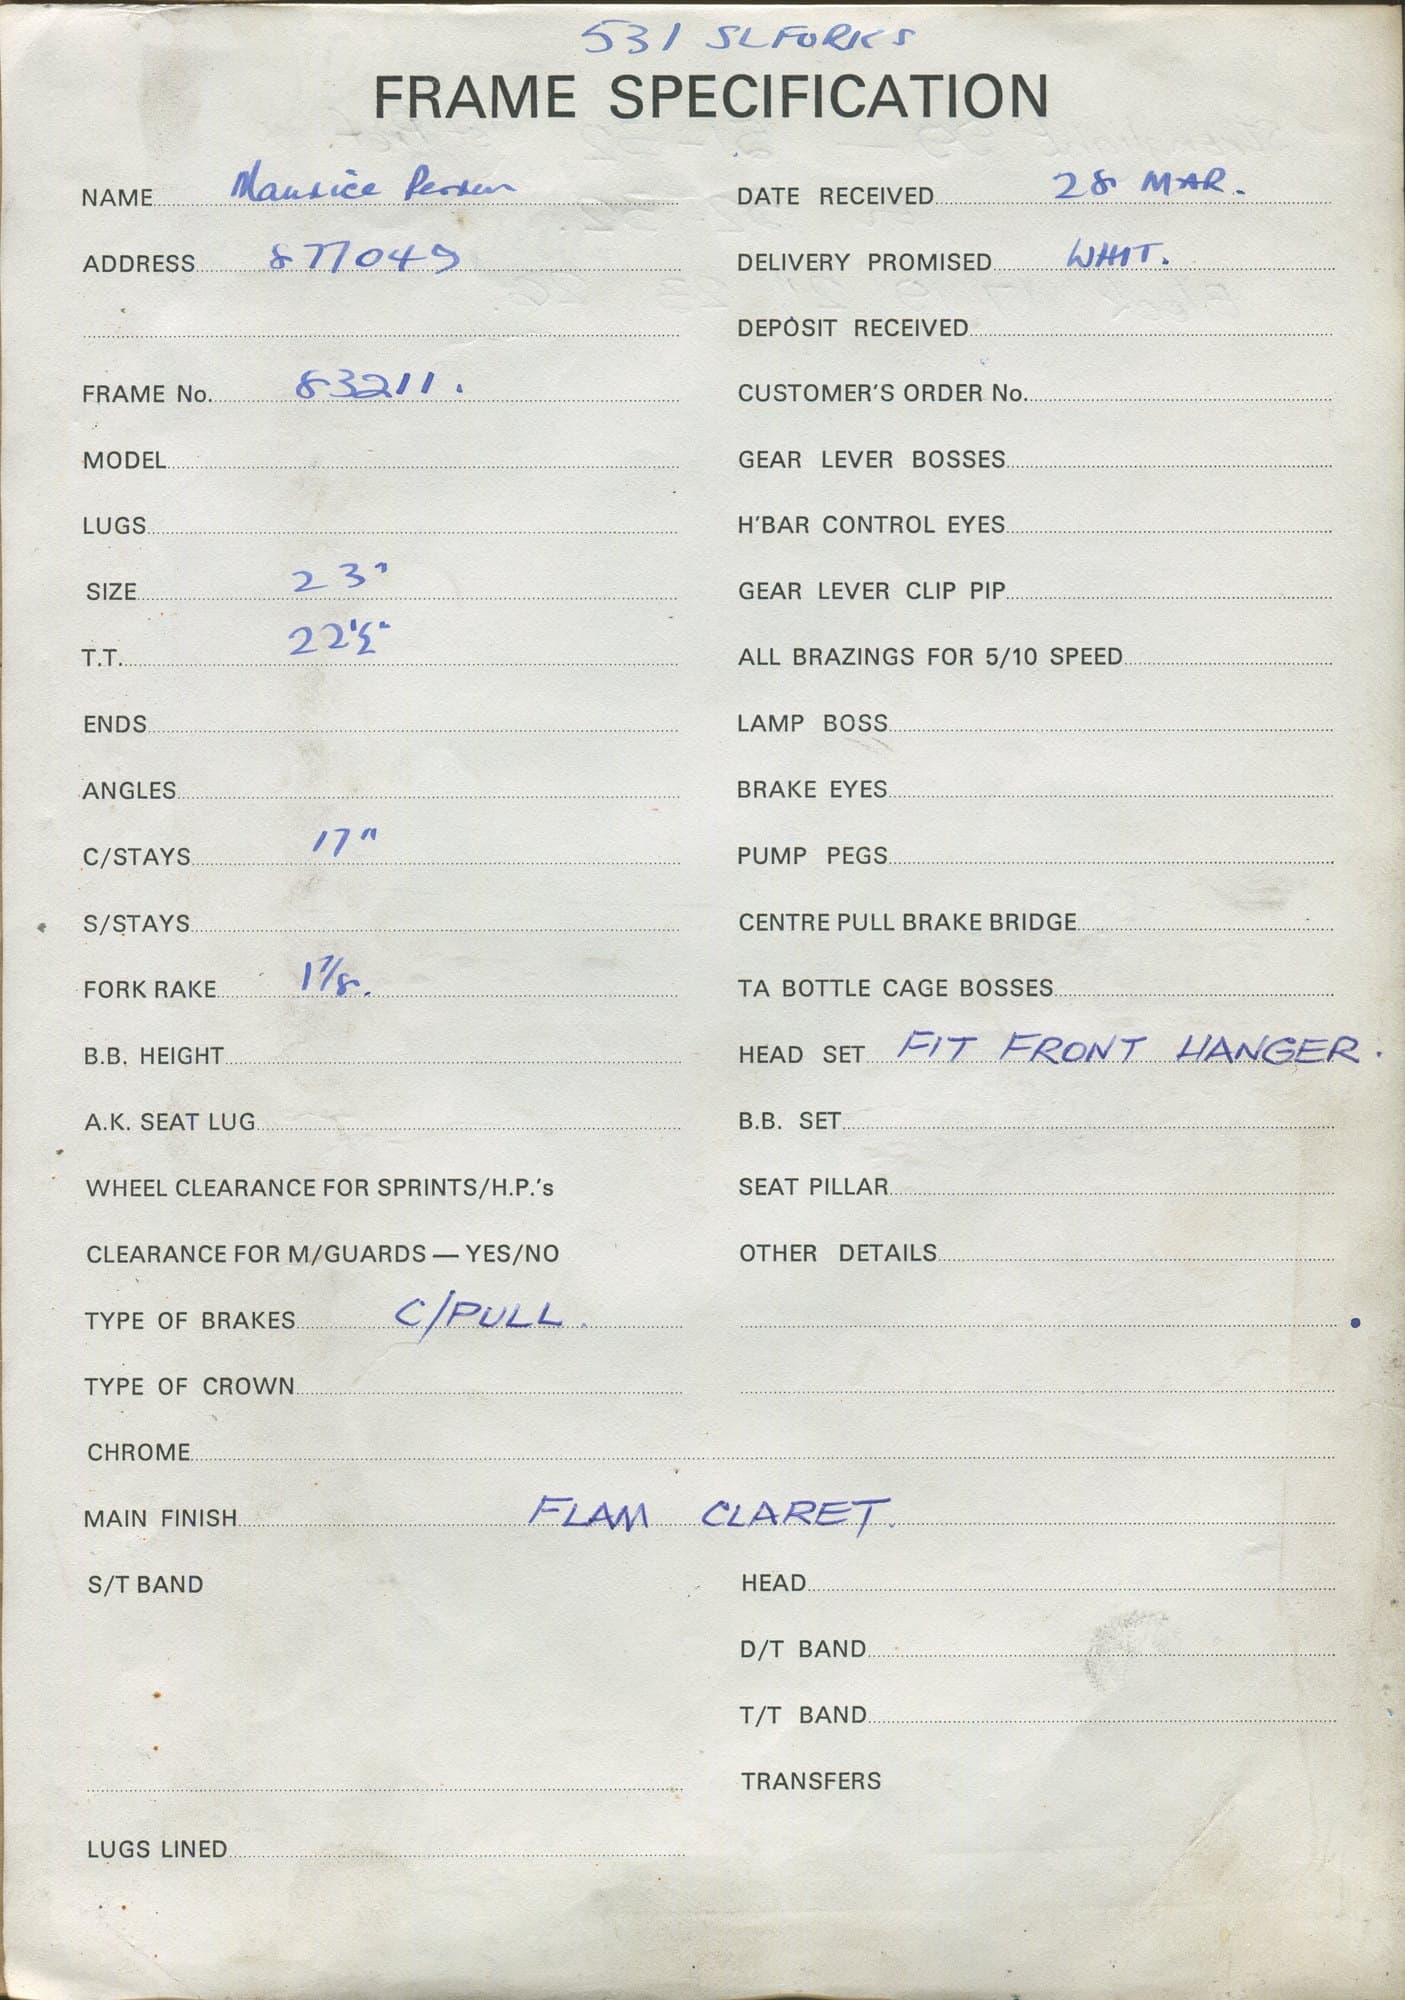 531 SL FORKS
FRAME SPECIFICATION
NAME Maurice
ADDRESS 877049
FRAME No. 83211.
MODEL
LUGS
SIZE 23"
T.T. 22½"
ENDS
ANGLES
C/STAYS 17"
S/STAYS
FORK RAKE 1⅞.
B.B. HEIGHT
A.K. SEAT LUG
WHEEL CLEARANCE FOR SPRINTS/H.P.'s
CLEARANCE FOR M/GUARDS — YES/NO
TYPE OF BRAKES C/PULL.
TYPE OF CROWN
DATE RECEIVED 28 MAR.
DELIVERY PROMISED WHIT.
DEPOSIT RECEIVED
CUSTOMER'S ORDER No.
GEAR LEVER BOSSES
H'BAR CONTROL EYES
GEAR LEVER CLIP PIP
ALL BRAZINGS FOR 5/10 SPEED
LAMP BOSS
BRAKE EYES
PUMP PEGS
CENTRE PULL BRAKE BRIDGE
TA BOTTLE CAGE BOSSES
HEAD SET FIT FRONT HANGER.
B.B. SET
SEAT PILLAR
OTHER DETAILS
CHROME
MAIN FINISH FLAM CLARET.
S/T BAND
LUGS LINED
HEAD
D/T BAND
T/T BAND
TRANSFERS